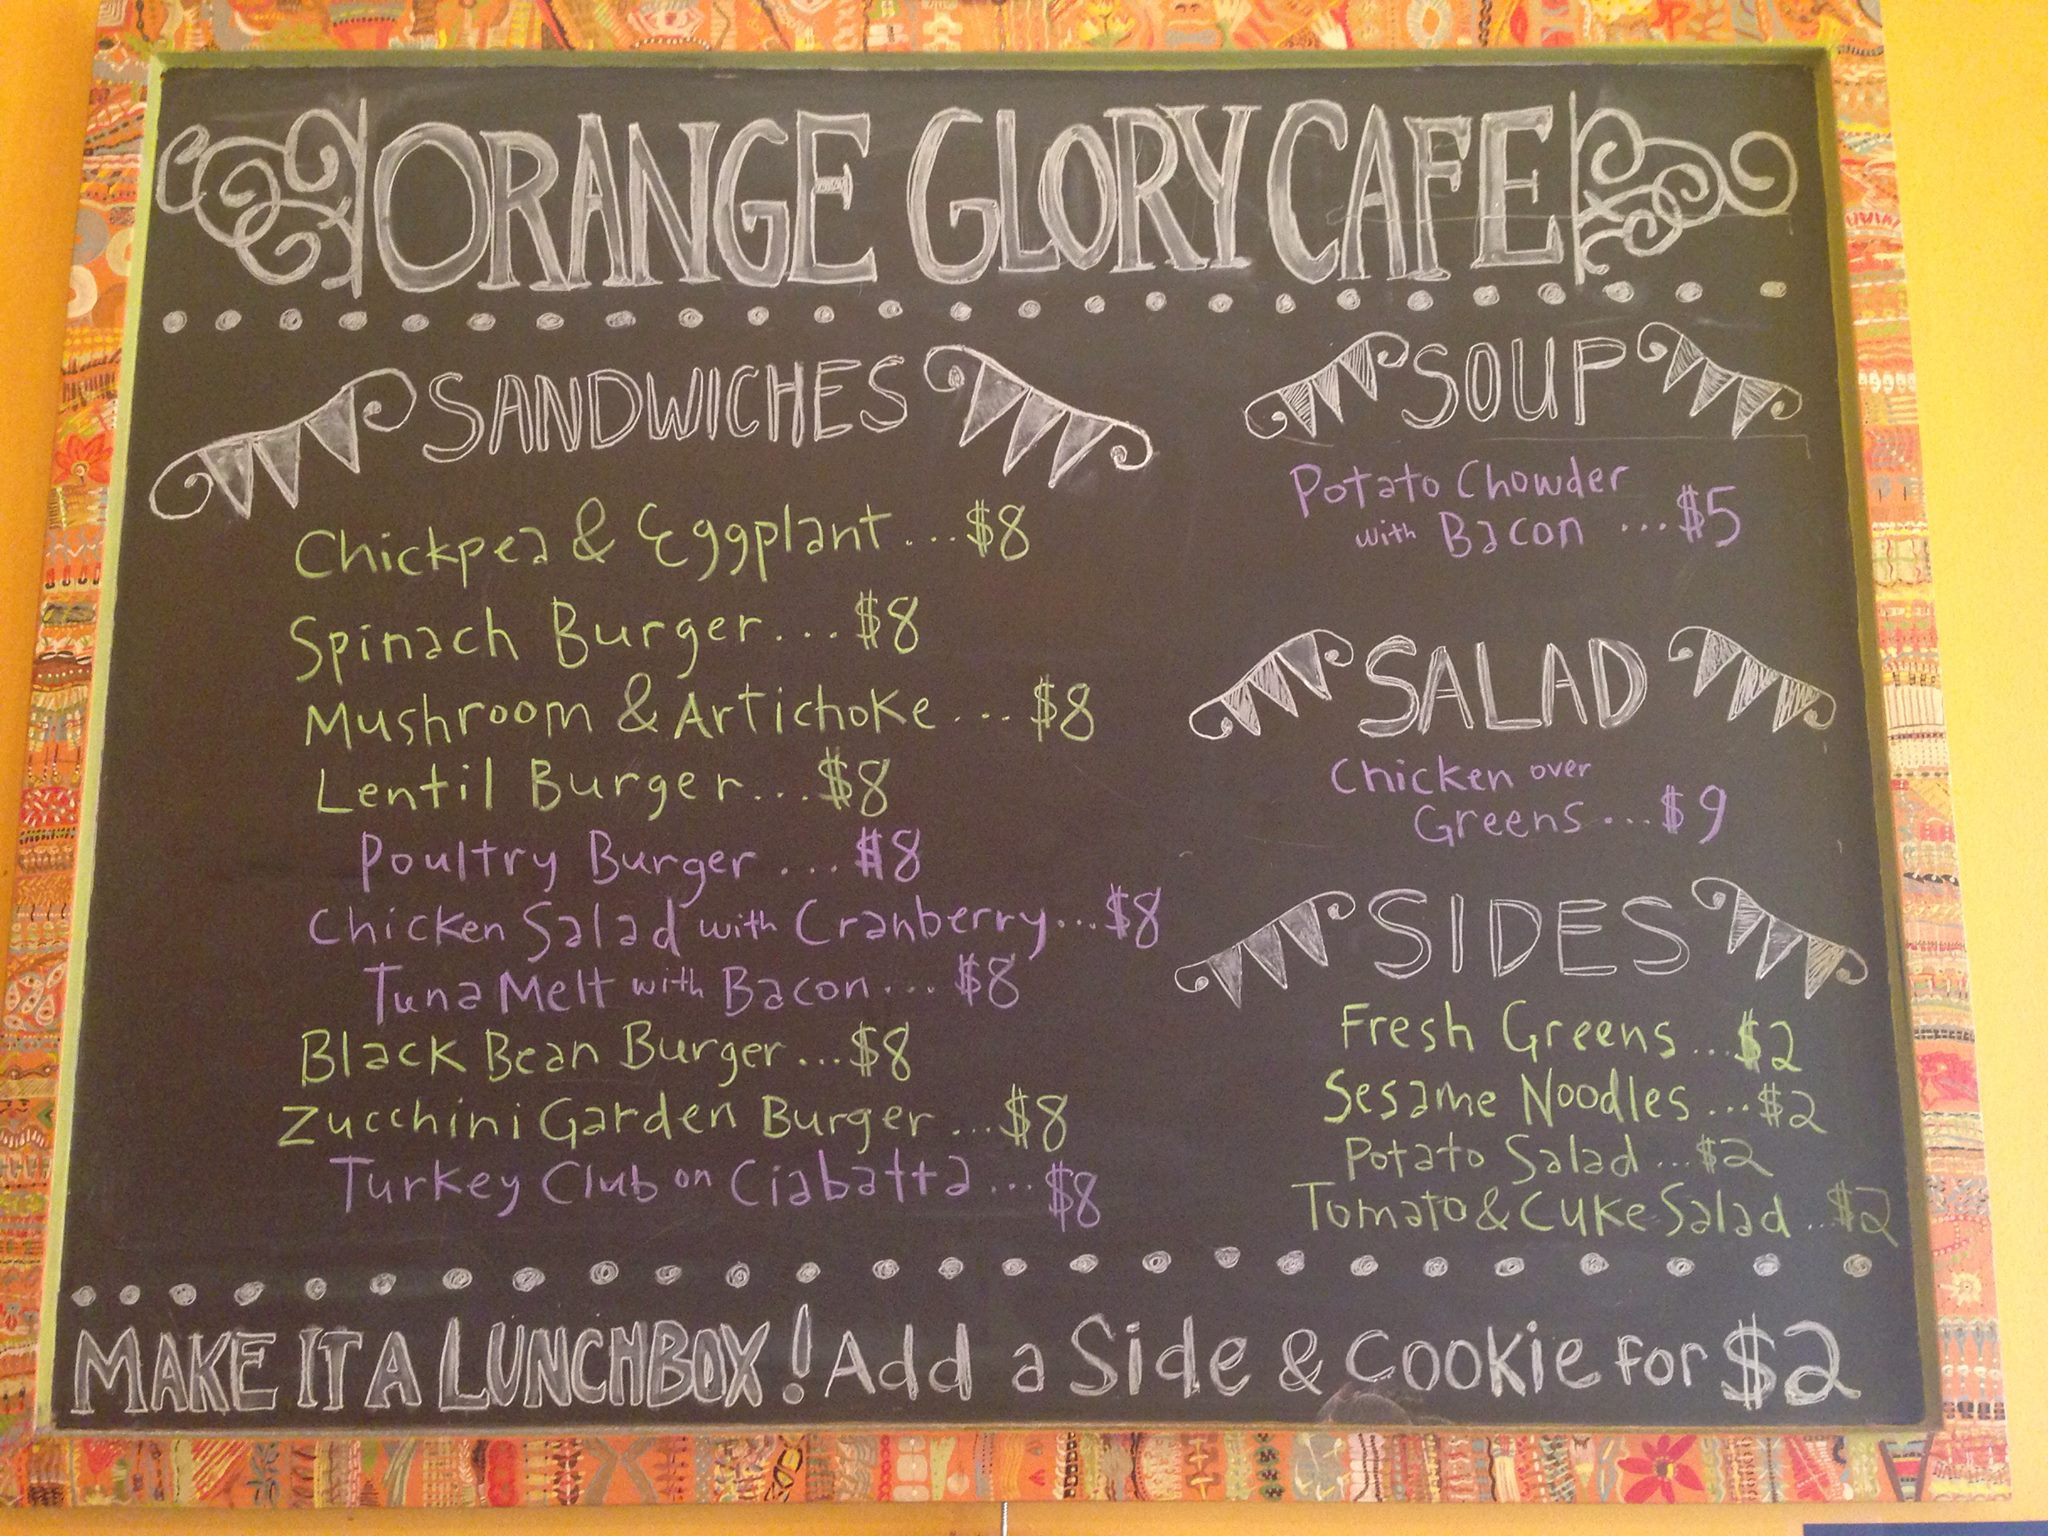 ORANGE GLORY CAFE
SANDWICHES
Chickpea & Eggplant...$8
Spinach Burger...$8
Mushroom & Artichoke...$8
Lentil Burger...$8
Poultry Burger...$8
Chicken Salad with Cranberry...$8
Tuna Melt with Bacon...$8
Black Bean Burger...$8
Zucchini Garden Burger...$8
Turkey Club on Ciabatta...$8
SOUP
Potato Chowder
with Bacon...$5
SALAD
Chicken over
Greens...$9
SIDES
Fresh Greens...$2
Sesame Noodles...$2
Potato Salad...$2
Tomato & Cuke Salad...$2
MAKE IT A LUNCHBOX! Add a Side & Cookie for $2